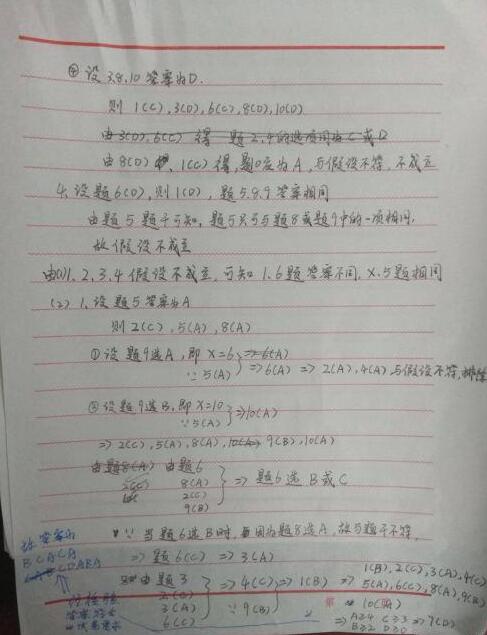 ④ 设 3.8.10 答案为D.
则 1(C), 3(D), 6(C), 8(D), 10(D)
由 3(D), 6(C) 得 题2,4的选项同为C或D
由 8(D) 1(C) 得, 题10应为A, 与假设不符, 不成立
4. 设题6(D), 则1(D), 题5.8.9答案相同
由题5题干可知, 题5只与题8或题9中的一项相同,
故假设不成立
由(1)1.2.3.4假设不成立, 可知1.6题答案不同, X.5题相同
(2) 1. 设题5答案为A
则 2(C), 5(A), 8(A)
① 设题9选A, 即X=6 ⇒6(A)
∵5(A) ⇒6(A) ⇒ 2(A), 4(A), 与假设不符, 排除
② 设题9选B, 即X=10
∵5(A) ⇒10(A)
⇒ 2(C), 5(A), 8(A), 10(A) 9(B), 10(A)
由题8(A) 由题6
2(C) 8(A)
2(C)
9(B)
⇒ 题6选B或C
∵ 当题6选B时, 因为题8选A, 故与题干不符,
⇒ 题6(C) ⇒ 3(A)
由题3
3(A)
6(C)
⇒4(C) ⇒ 1(B)
∵9(B)
1(B), 2(C), 3(A), 4(C)
⇒ 5(A), 6(C), 8(A), 9(B)
10(A)
⇒ A≥4 C≥3
B≥2 D≥0
⇒7(D)
故答案为
BCACA
CDABA
经检验
答案符合